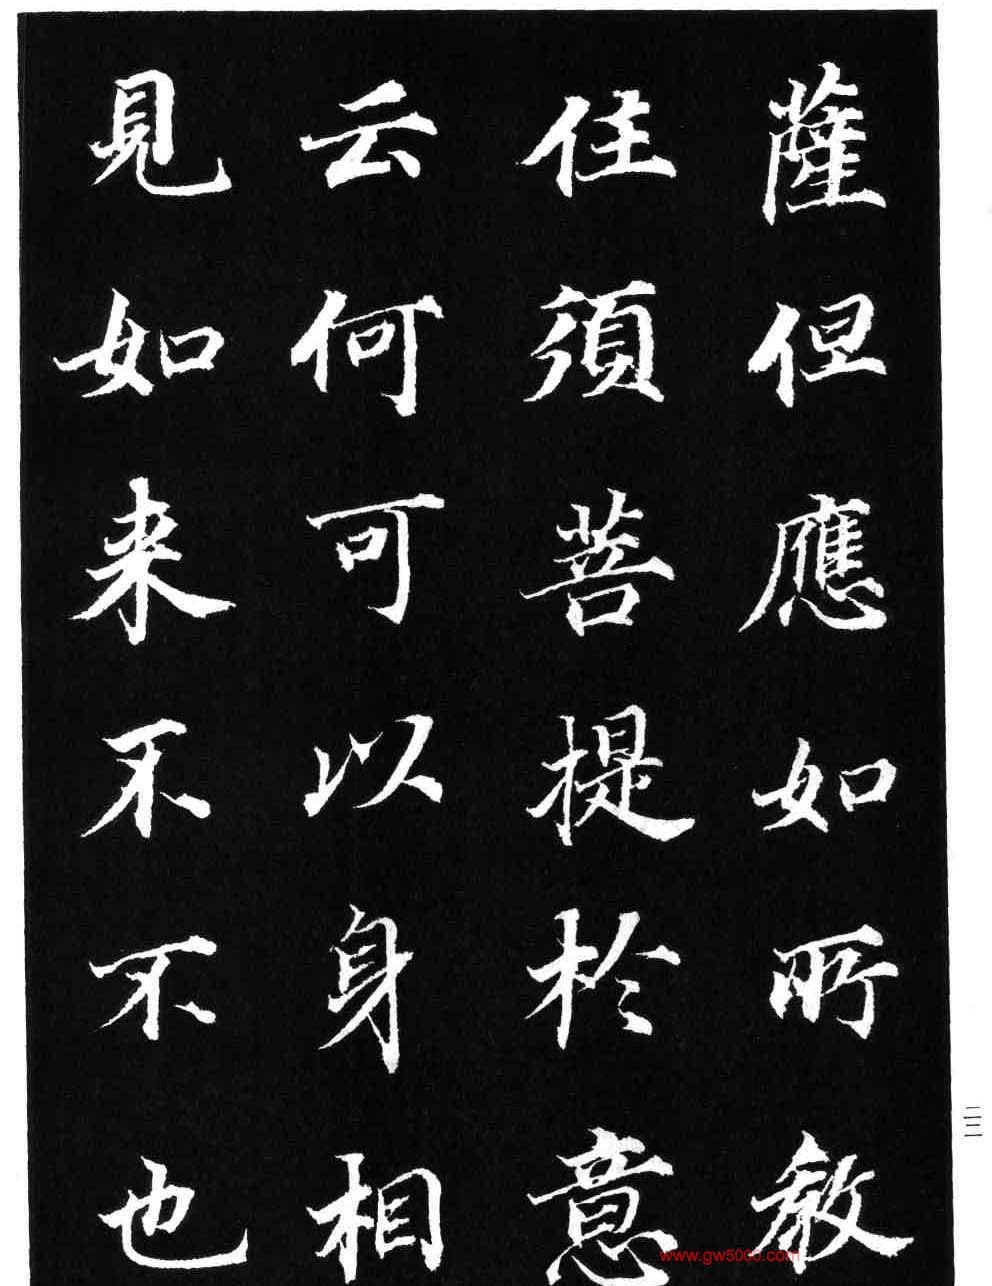 薩但應如所教
住須菩提於意
云何可以身相
見如来不不也
二三
www.gw5000.com